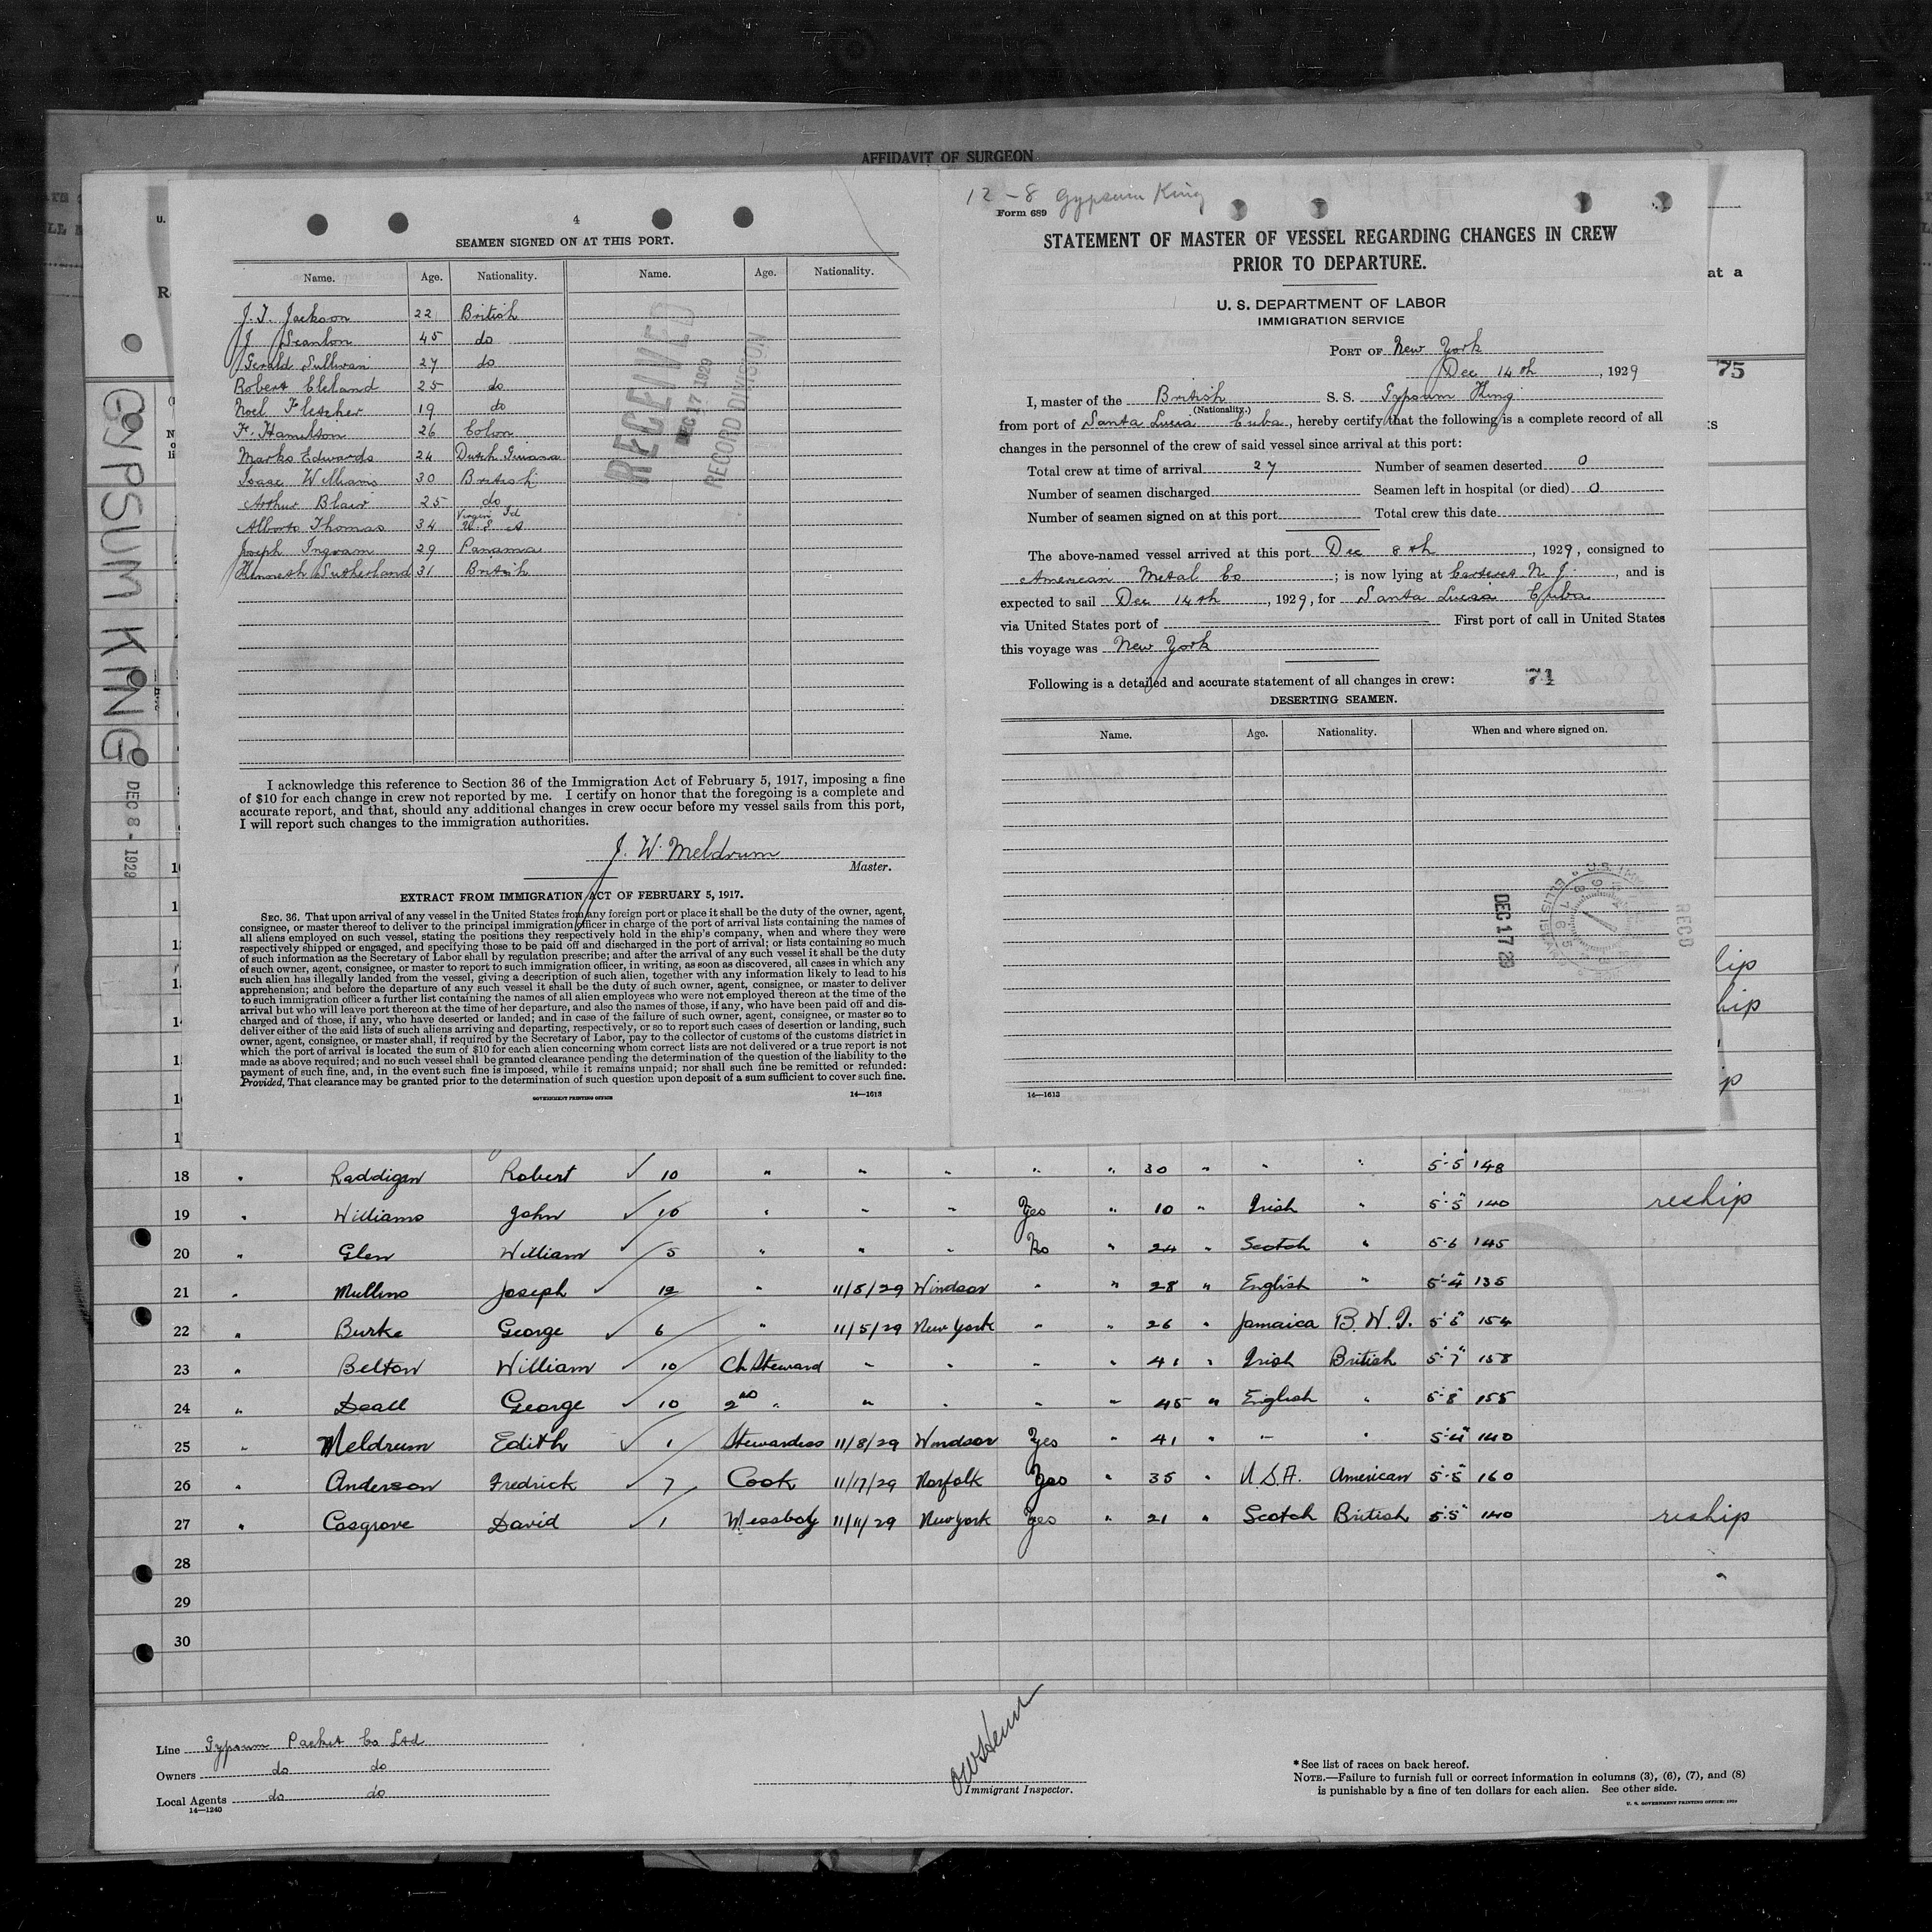 AFFIDAVIT OF SURGEON
4
SEAMEN SIGNED ON AT THIS PORT.
Name. Age. Nationality. Name. Age. Nationality.
J. T. Jackson 22 British
J Scanlon 45 do
Gerald Sullivan 27 do
Robert Cleland 25 do
Noel Fletcher 19 do
F. Hamilton 26 Colon
Marks Edwards 24 Dutch Guiana
Isaac Williams 30 British
Arthur Blair 25 do
Alberto Thomas 34 Virgin Id U. S. A
Joseph Ingram 29 Panama
Kenneth Sutherland 31 British
RECEIVED
DEC 17 1929
RECORD DIVISION
I acknowledge this reference to Section 36 of the Immigration Act of February 5, 1917, imposing a fine
of $10 for each change in crew not reported by me. I certify on honor that the foregoing is a complete and
accurate report, and that, should any additional changes in crew occur before my vessel sails from this port,
I will report such changes to the immigration authorities.
J. W. Meldrum
Master.
EXTRACT FROM IMMIGRATION ACT OF FEBRUARY 5, 1917.
SEC. 36. That upon arrival of any vessel in the United States from any foreign port or place it shall be the duty of the owner, agent,
consignee, or master thereof to deliver to the principal immigration officer in charge of the port of arrival lists containing the names of
all aliens employed on such vessel, stating the positions they respectively hold in the ship's company, when and where they were
respectively shipped or engaged, and specifying those to be paid off and discharged in the port of arrival; or lists containing so much
of such information as the Secretary of Labor shall by regulation prescribe; and after the arrival of any such vessel it shall be the duty
of such owner, agent, consignee, or master to report to such immigration officer, in writing, as soon as discovered, all cases in which any
such alien has illegally landed from the vessel, giving a description of such alien, together with any information likely to lead to his
apprehension; and before the departure of any such vessel it shall be the duty of such owner, agent, consignee, or master to deliver
to such immigration officer a further list containing the names of all alien employees who were not employed thereon at the time of the
arrival but who will leave port thereon at the time of her departure, and also the names of those, if any, who have been paid off and dis-
charged and of those, if any, who have deserted or landed; and in case of the failure of such owner, agent, consignee, or master so to
deliver either of the said lists of such aliens arriving and departing, respectively, or so to report such cases of desertion or landing, such
owner, agent, consignee, or master shall, if required by the Secretary of Labor, pay to the collector of customs of the customs district in
which the port of arrival is located the sum of $10 for each alien concerning whom correct lists are not delivered or a true report is not
made as above required; and no such vessel shall be granted clearance pending the determination of the question of the liability to the
payment of such fine, and, in the event such fine is imposed, while it remains unpaid; nor shall such fine be remitted or refunded:
Provided, That clearance may be granted prior to the determination of such question upon deposit of a sum sufficient to cover such fine.
GOVERNMENT PRINTING OFFICE 14—1613
12-8 Gypsum King
Form 689
STATEMENT OF MASTER OF VESSEL REGARDING CHANGES IN CREW
PRIOR TO DEPARTURE.
U. S. DEPARTMENT OF LABOR
IMMIGRATION SERVICE
PORT OF New York
Dec 14th, 1929
I, master of the British S. S. Gypsum King
(Nationality.)
from port of Santa Lucia Cuba, hereby certify that the following is a complete record of all
changes in the personnel of the crew of said vessel since arrival at this port:
Total crew at time of arrival 27 Number of seamen deserted 0
Number of seamen discharged Seamen left in hospital (or died) 0
Number of seamen signed on at this port Total crew this date
The above-named vessel arrived at this port Dec 8th, 1929, consigned to
American Metal Co; is now lying at Carteret N. J., and is
expected to sail Dec 14th, 1929, for Santa Lucia Cuba
via United States port of First port of call in United States
this voyage was New York
Following is a detailed and accurate statement of all changes in crew: 71
DESERTING SEAMEN.
Name. Age. Nationality. When and where signed on.
DEC 17 29
RECD
14—1613
at a
75
GYPSUM KING
DEC 8 - 1929
18 " Raddigan Robert ✓ 10 " " " " " 30 " " " 5'-5" 148
19 " Williams John ✓ 10 " " " Yes " 10 " Irish " 5'-5" 140 reship
20 " Glen William ✓ 5 " " " No " 24 " Scotch " 5-6 145
21 " Mullins Joseph ✓ 12 " 11/5/29 Windsor " " 28 " English " 5'-4" 135
22 " Burke George ✓ 6 " 11/5/29 New York " " 26 " Jamaica B. W. I. 5'-6" 154
23 " Belton William ✓ 10 Ch Steward " " " " 41 " Irish British 5'-7" 158
24 " Deall George ✓ 10 2nd " " " " " 45 " English " 5'-8" 155
25 " Meldrum Edith ✓ 1 Stewardess 11/8/29 Windsor Yes " 41 " " " 5'-4" 140
26 " Anderson Fredrick ✓ 7 Cook 11/17/29 Norfolk Yes " 35 " U.S.A. American 5'-5" 160
27 " Cosgrove David ✓ 1 Messboy 11/11/29 New York Yes " 21 " Scotch British 5'-5" 140 reship
28
29
30
Line Gypsum Packet Co Ltd
Owners do do
Local Agents do do
14—1240
Immigrant Inspector.
* See list of races on back hereof.
NOTE.—Failure to furnish full or correct information in columns (3), (6), (7), and (8)
is punishable by a fine of ten dollars for each alien. See other side.
U. S. GOVERNMENT PRINTING OFFICE: 1929